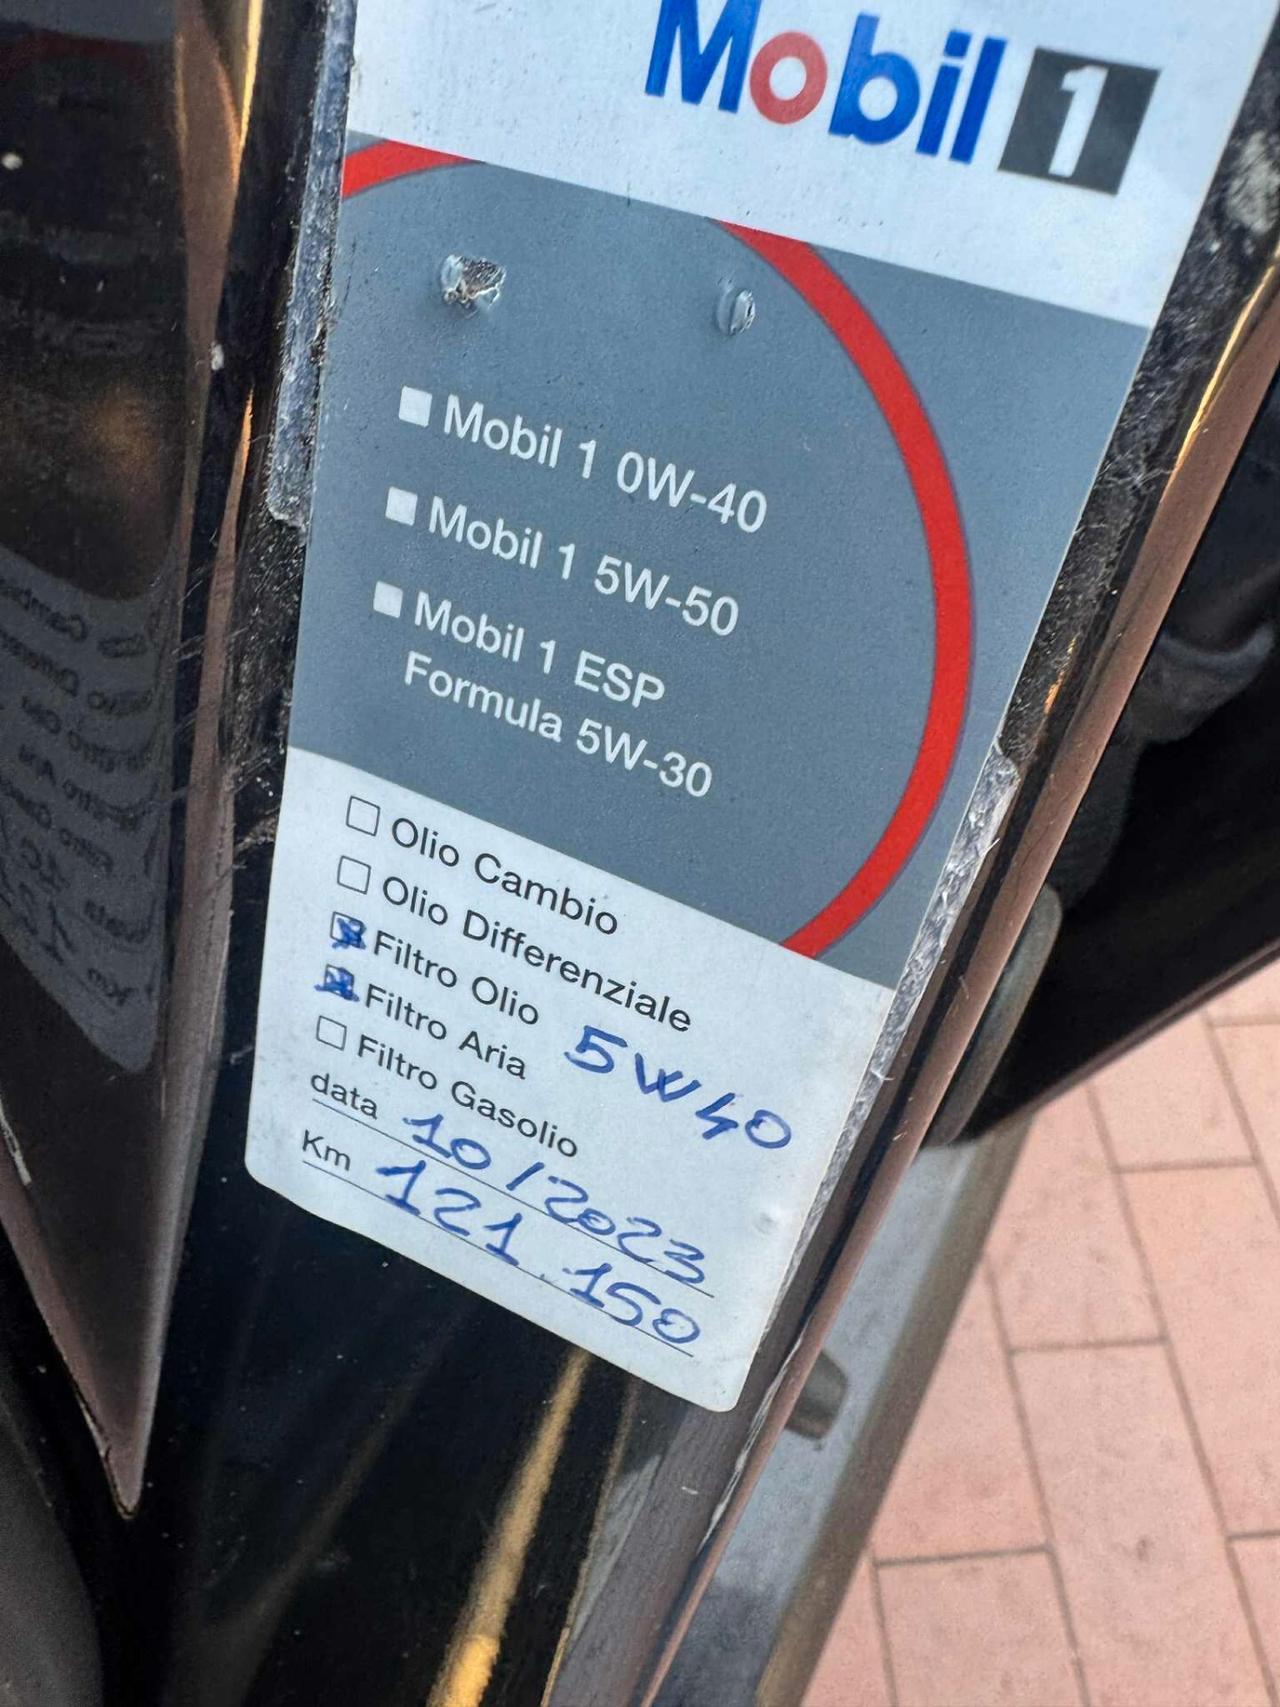 Mobil 1
Mobil 1 0W-40
Mobil 1 5W-50
Mobil 1 ESP
Formula 5W-30
Olio Cambio
Olio Differenziale
Filtro Olio
Filtro Aria 5W40
Filtro Gasolio
data 10/2023
Km 121.150